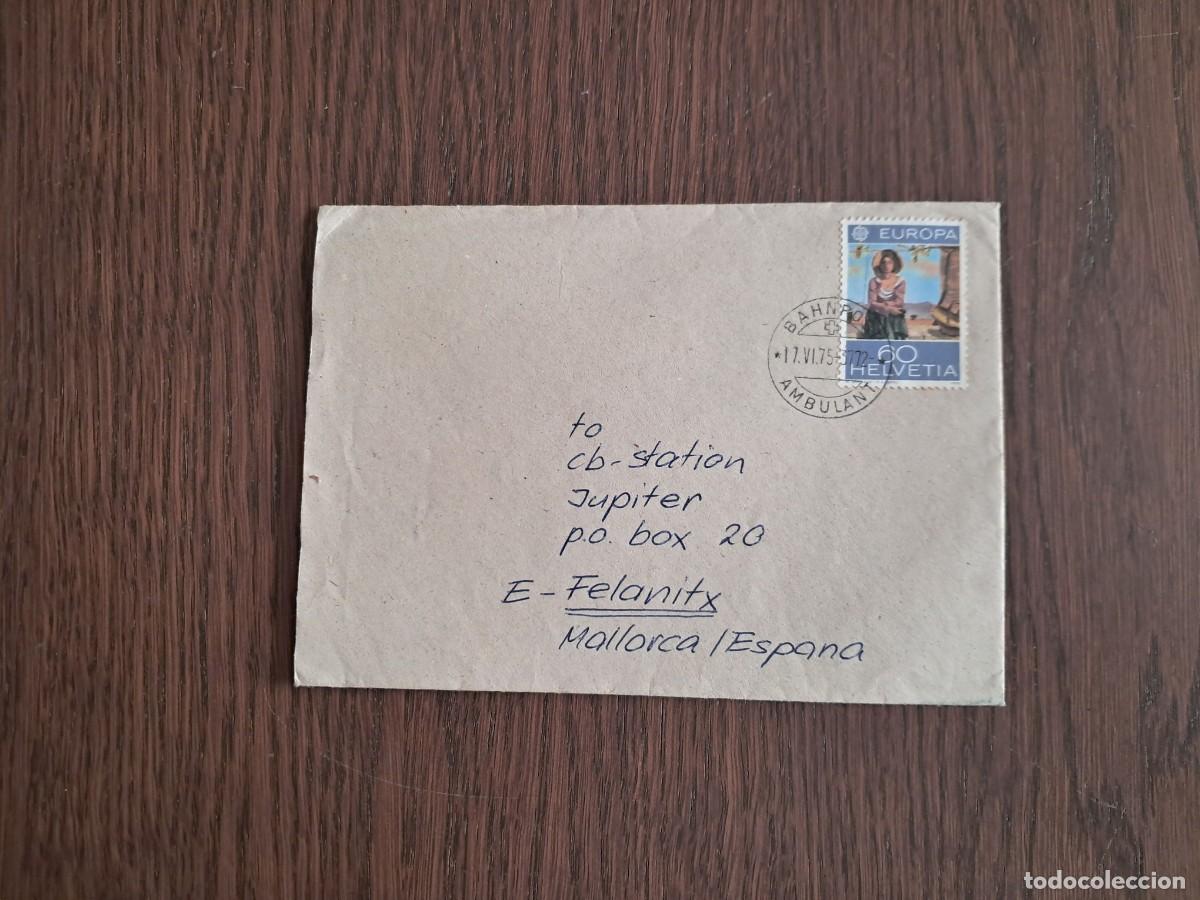 EUROPA
60
HELVETIA
BAHNPO
17.VI.75-3772-
AMBULANT
to
cb-station
Jupiter
p.o. box 20
E - Felanitx
Mallorca / Espana
todocoleccion